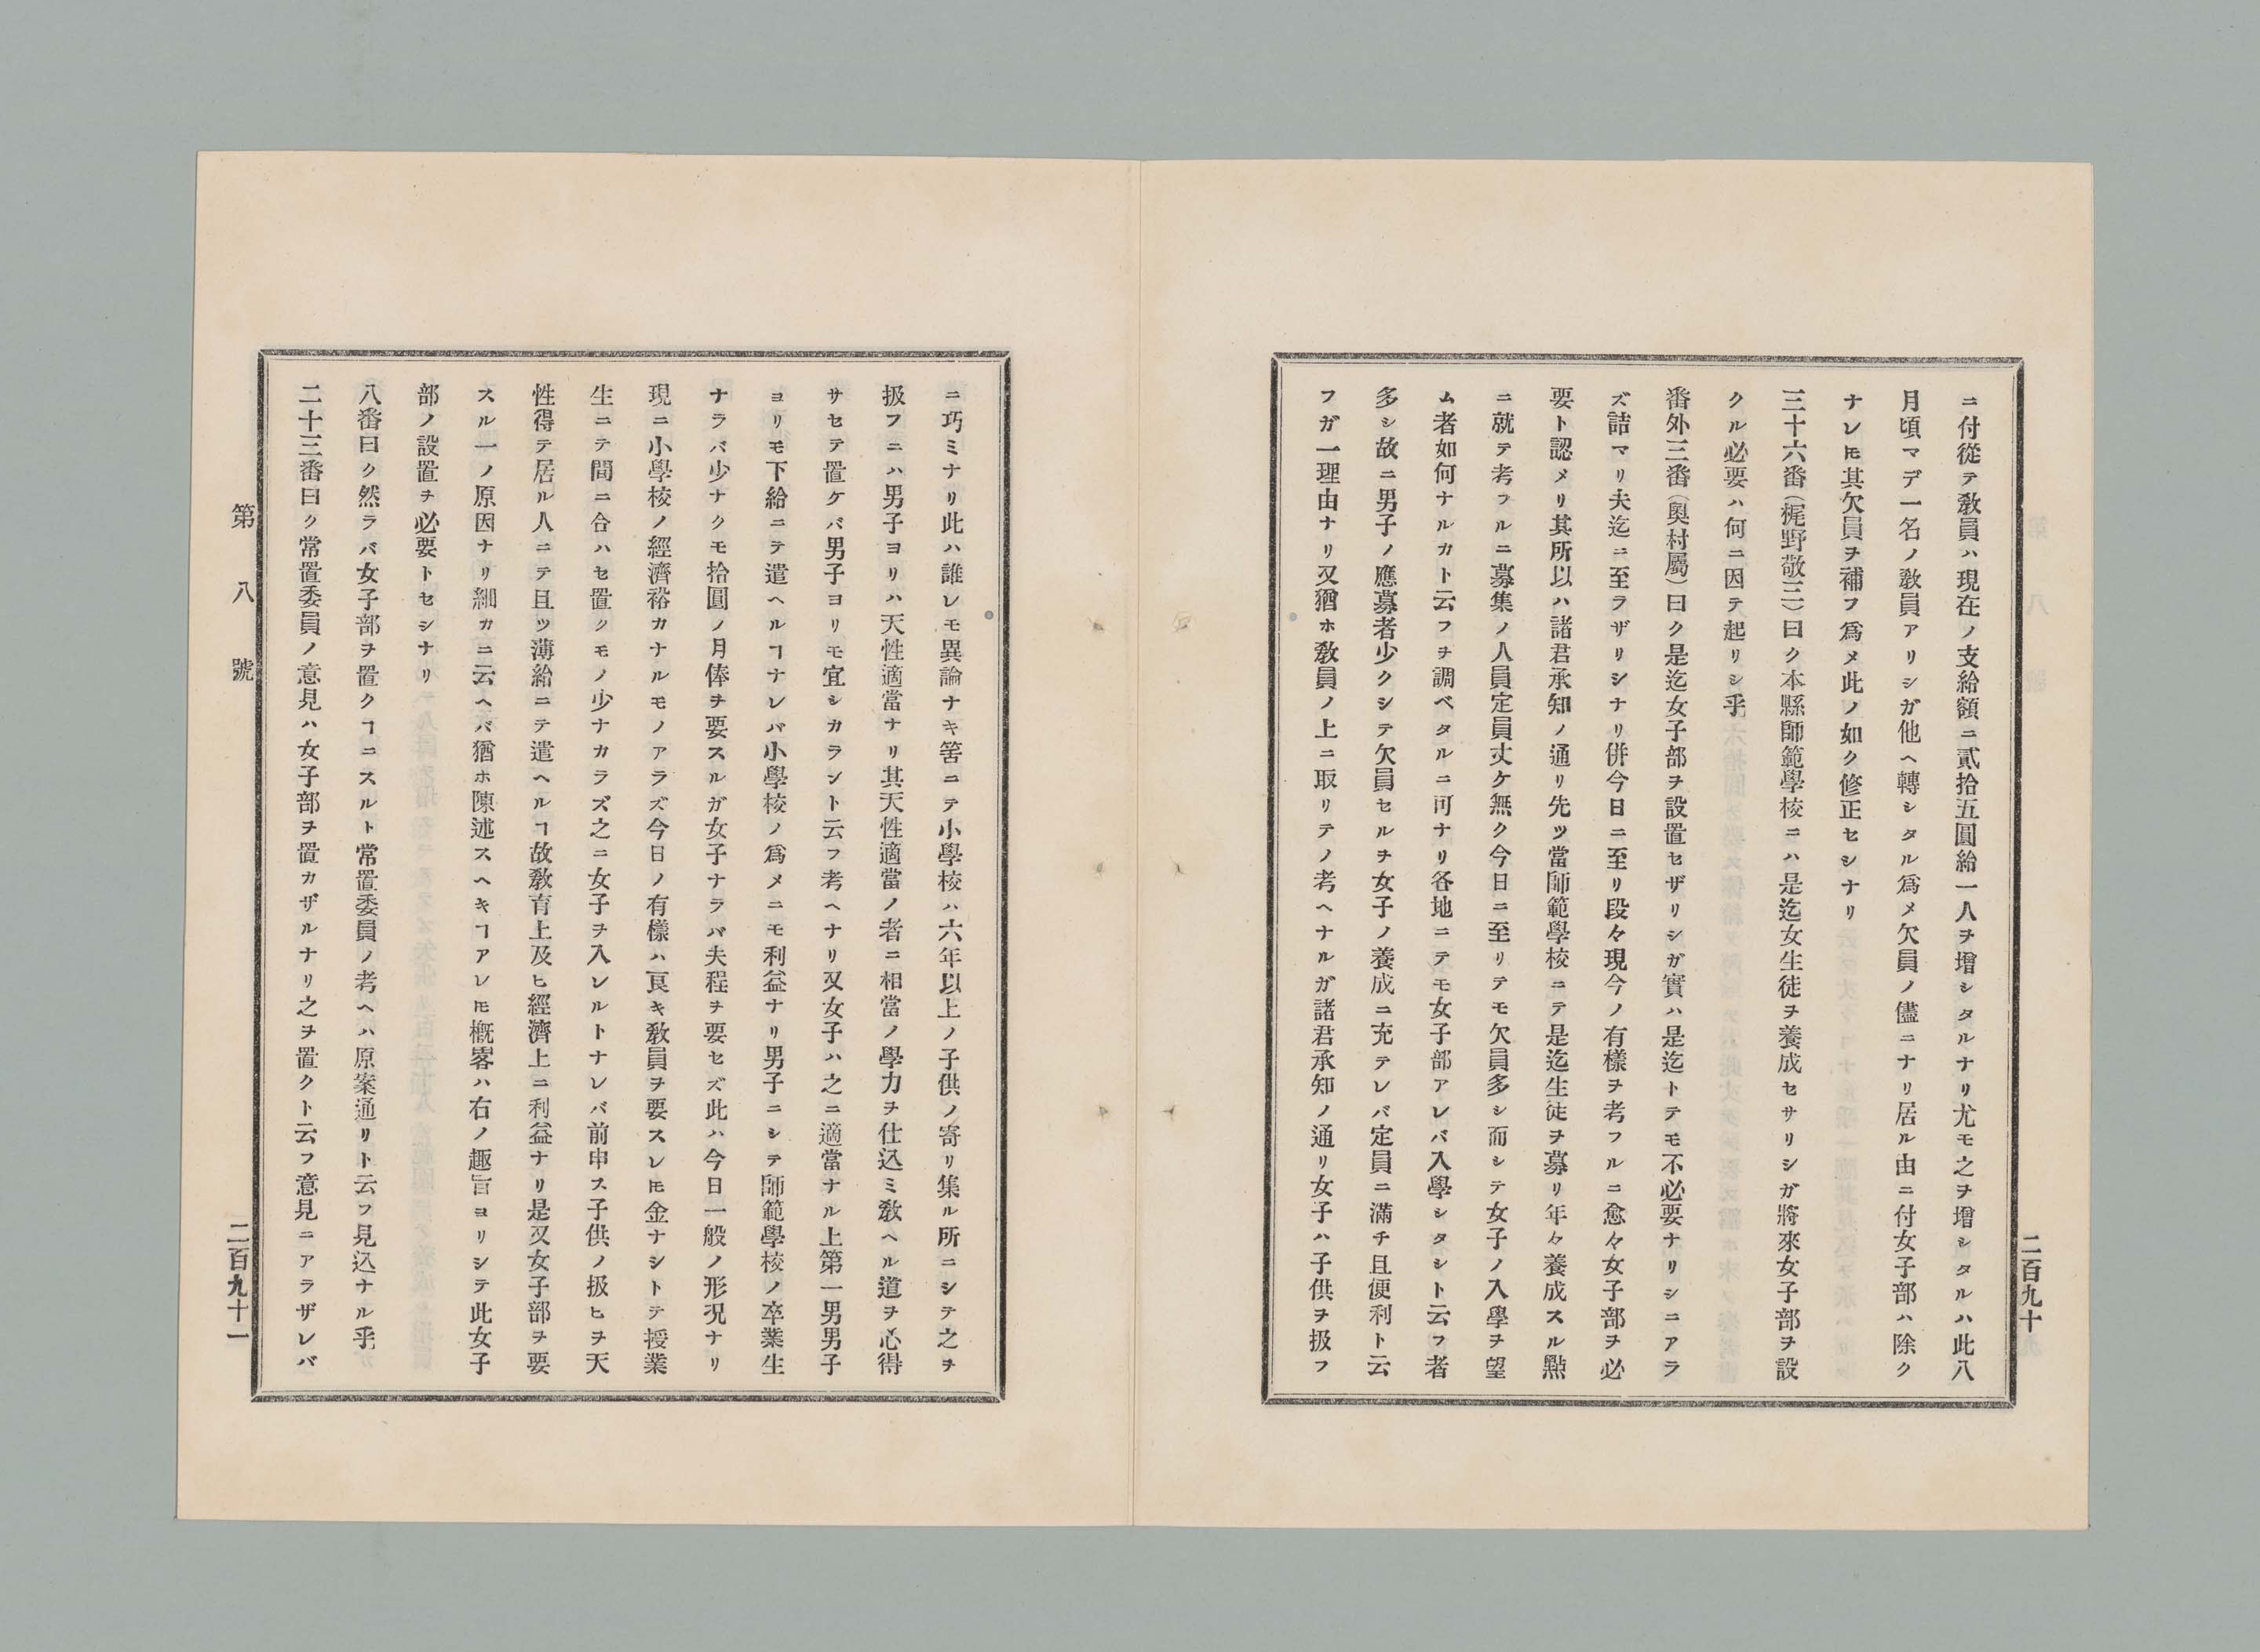 ニ付從テ敎員ハ現在ノ支給額ニ貳拾五圓給一人ヲ增シタルナリ尤モ之ヲ增シタルハ此八
月頃マデ一名ノ敎員アリシガ他ヘ轉シタル爲メ欠員ノ儘ニナリ居ル由ニ付女子部ハ除ク
ナレ𪜈其欠員ヲ補フ爲メ此ノ如ク修正セシナリ
三十六番(梶野敬三)曰ク本縣師範學校ニハ是迄女生徒ヲ養成セサリシガ將來女子部ヲ設
クル必要ハ何ニ因テ起リシ乎
番外三番(奧村屬)曰ク是迄女子部ヲ設置セザリシガ實ハ是迄トテモ不必要ナリシニアラ
ズ詰マリ夫迄ニ至ラザリシナリ併今日ニ至リ段々現今ノ有樣ヲ考フルニ愈々女子部ヲ必
要ト認メリ其所以ハ諸君承知ノ通リ先ツ當師範學校ニテ是迄生徒ヲ募リ年々養成スル㸃
ニ就テ考フルニ募集ノ人員定員丈ケ無ク今日ニ至リテモ欠員多シ而シテ女子ノ入學ヲ望
ム者如何ナルカト云フヲ調ベタルニ可ナリ各地ニテモ女子部アレバ入學シタシト云フ者
多シ故ニ男子ノ應募者少クシテ欠員セルヲ女子ノ養成ニ充テレバ定員ニ滿チ且便利ト云
フガ一理由ナリ又猶ホ敎員ノ上ニ取リテノ考ヘナルガ諸君承知ノ通リ女子ハ子供ヲ扱フ
二百九十
ニ巧ミナリ此ハ誰レモ異論ナキ筈ニテ小學校ハ六年以上ノ子供ノ寄リ集ル所ニシテ之ヲ
扱フニハ男子ヨリハ天性適當ナリ其天性適當ノ者ニ相當ノ學力ヲ仕込ミ敎ヘル道ヲ心得
サセテ置ケバ男子ヨリモ宜シカラント云フ考ヘナリ又女子ハ之ニ適當ナル上第一男男子
ヨリモ下給ニテ遣ヘルヿナレバ小學校ノ爲メニモ利益ナリ男子ニシテ師範學校ノ卒業生
ナラバ少ナクモ拾圓ノ月俸ヲ要スルガ女子ナラバ夫程ヲ要セズ此ハ今日一般ノ形況ナリ
現ニ小學校ノ經濟裕カナルモノアラズ今日ノ有樣ハ良キ敎員ヲ要スレ𪜈金ナシトテ授業
生ニテ間ニ合ハセ置クモノ少ナカラズ之ニ女子ヲ入レルトナレバ前申ス子供ノ扱ヒヲ天
性得テ居ル人ニテ且ツ薄給ニテ遣ヘルヿ故敎育上及ヒ經濟上ニ利益ナリ是又女子部ヲ要
スル一ノ原因ナリ細カニ云ヘバ猶ホ陳述スヘキヿアレ𪜈槪畧ハ右ノ趣旨ヨリシテ此女子
部ノ設置ヲ必要トセシナリ
八番曰ク然ラバ女子部ヲ置クヿニスルト常置委員ノ考ヘハ原案通リト云フ見込ナル乎
二十三番曰ク常置委員ノ意見ハ女子部ヲ置カザルナリ之ヲ置クト云フ意見ニアラザレバ
第八號
二百九十一